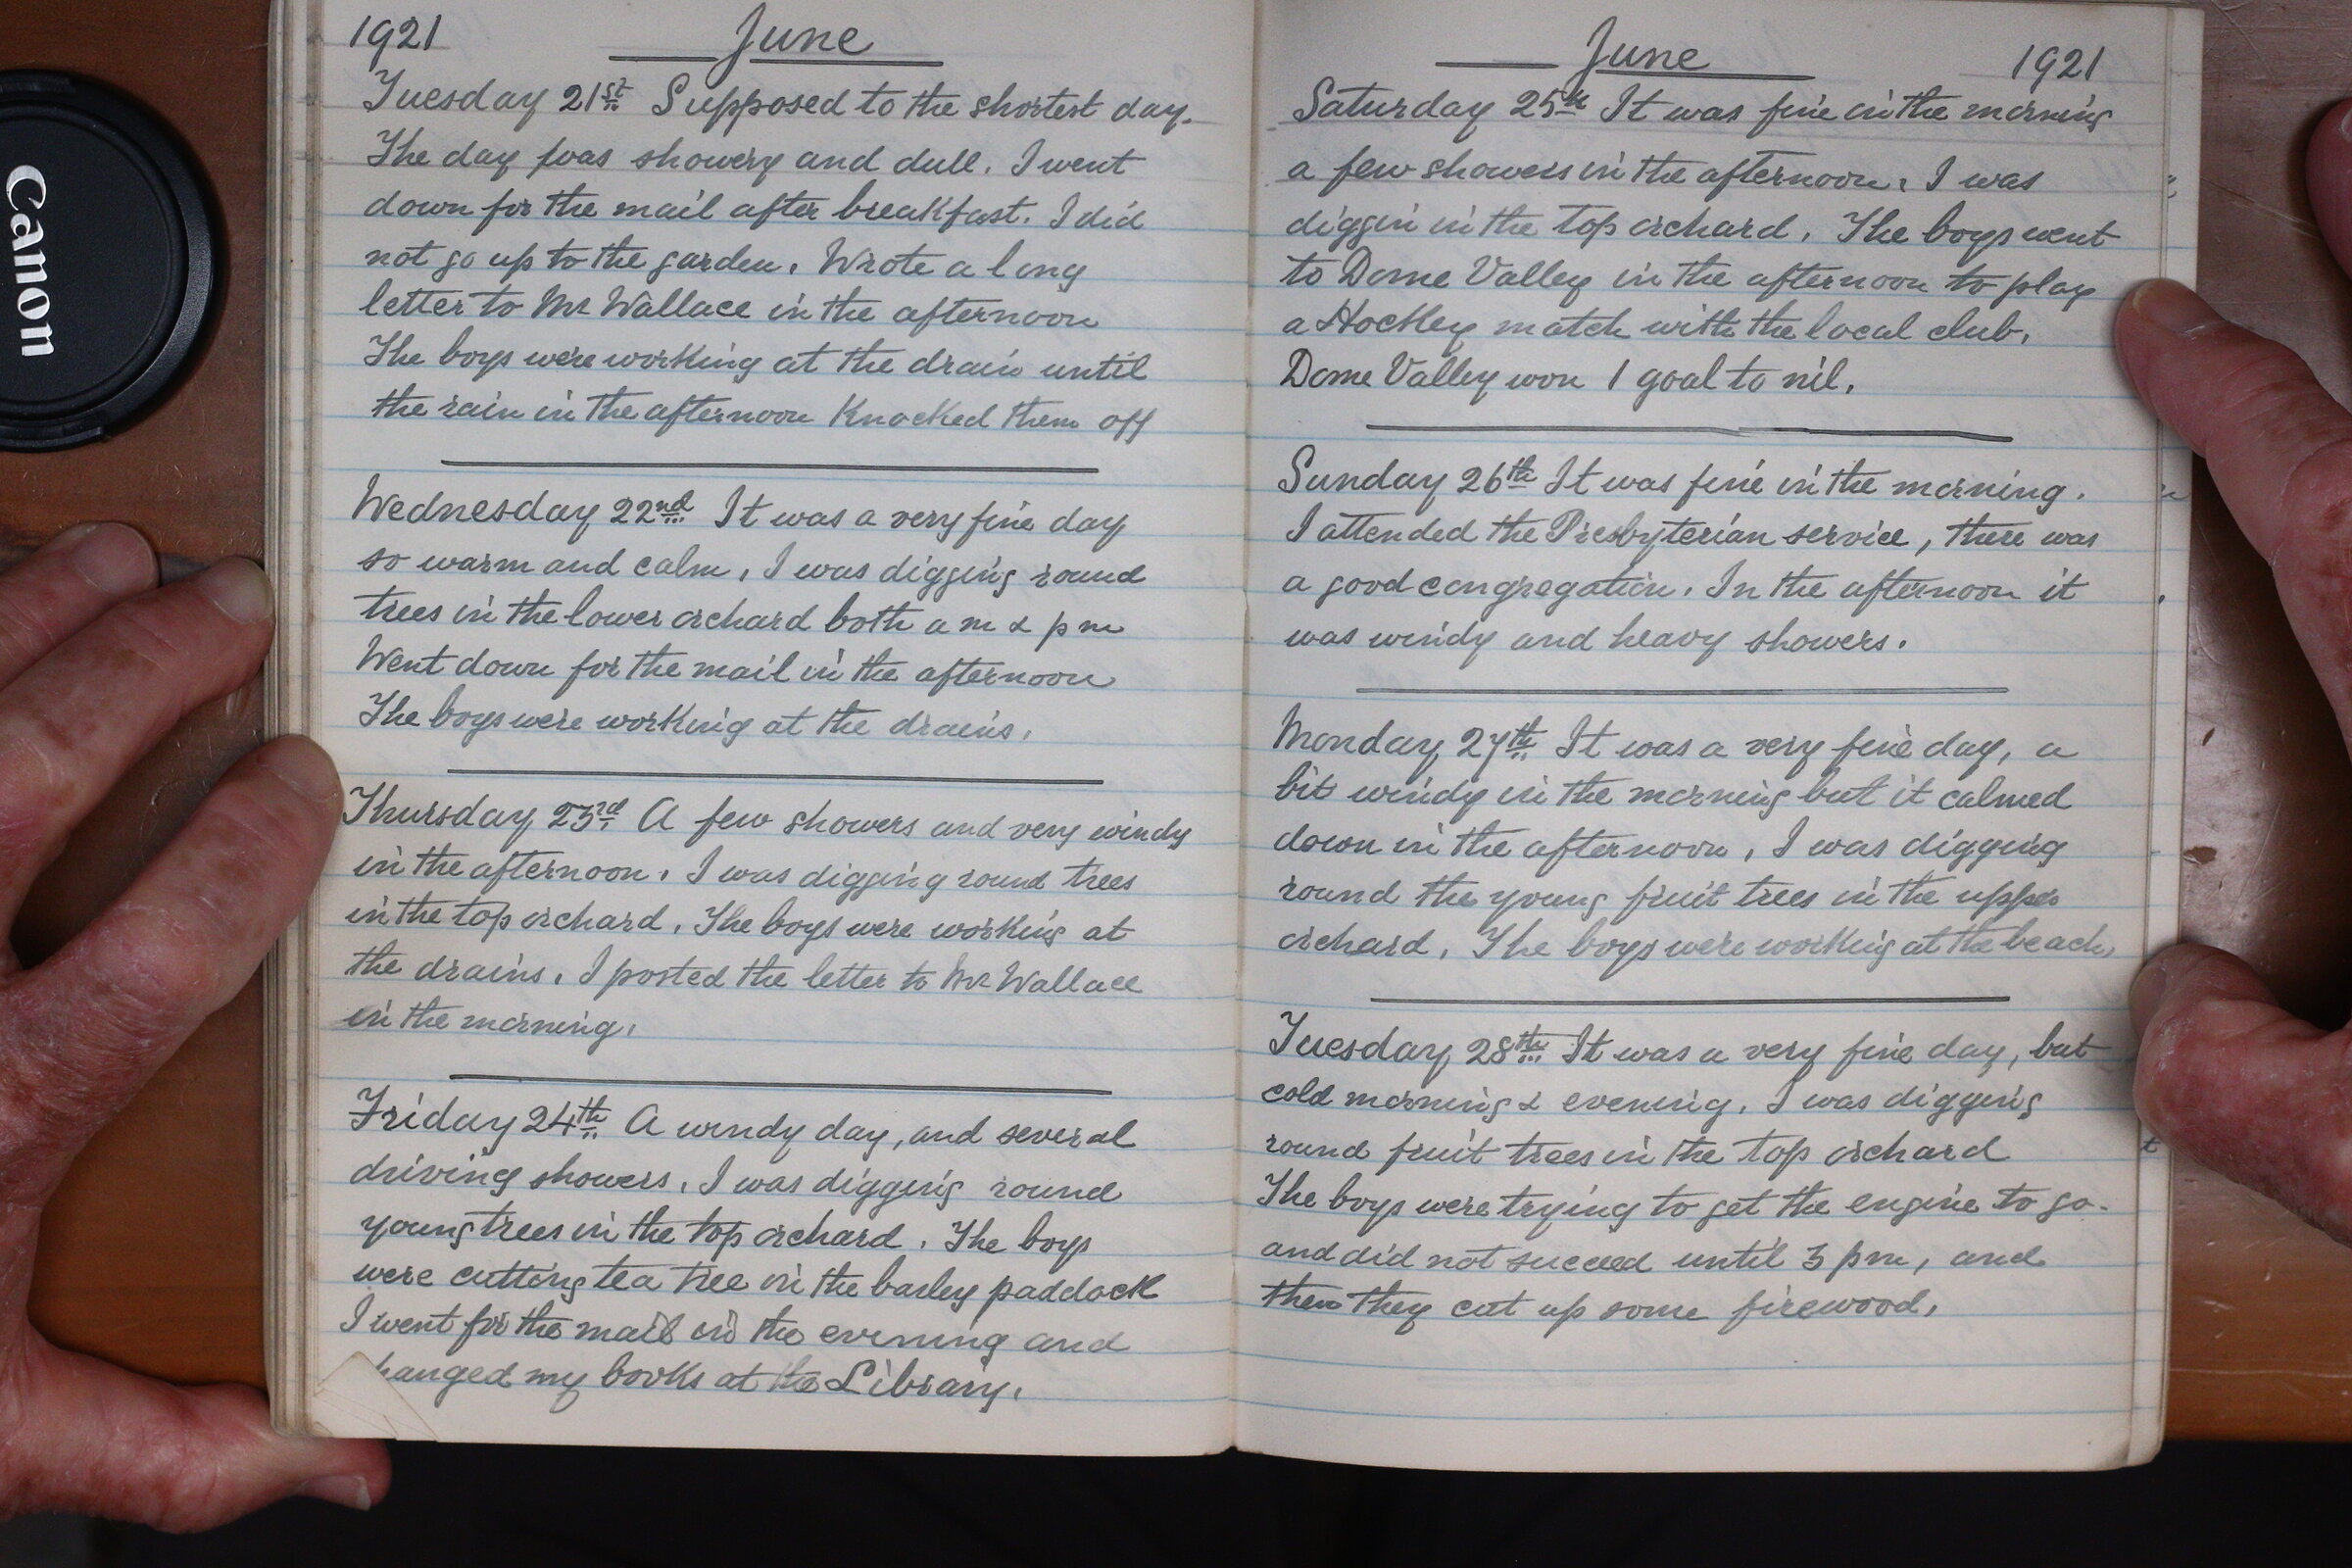 Canon
1921 June
Tuesday 21st Supposed to the shortest day.
The day was showery and dull. I went
down for the mail after breakfast. I did
not go up to the garden. Wrote a long
letter to Mr Wallace in the afternoon
The boys were working at the drain until
the rain in the afternoon Knocked them off
Wednesday 22nd It was a very fine day
so warm and calm. I was digging round
trees in the lower orchard both a m & p m
Went down for the mail in the afternoon
The boys were working at the drains.
Thursday 23rd A few showers and very windy
in the afternoon. I was digging round trees
in the top orchard. The boys were working at
the drains. I posted the letter to Mr Wallace
in the morning.
Friday 24th A windy day, and several
driving showers. I was digging round
young trees in the top orchard. The boys
were cutting tea tree in the barley paddock
I went for the mail in the evening and
hanged my books at the Library.
June 1921
Saturday 25th It was fine in the morning
a few showers in the afternoon. I was
diggin in the top orchard. The boys went
to Dome Valley in the afternoon to play
a Hockey match with the local club.
Dome Valley won 1 goal to nil.
Sunday 26th It was fine in the morning.
I attended the Presbyterian service, there was
a good congregation. In the afternoon it
was windy and heavy showers.
Monday 27th It was a very fine day, a
bit windy in the morning but it calmed
down in the afternoon. I was digging
round the young fruit trees in the upper
orchard. The boys were working at the beach,
Tuesday 28th It was a very fine day, but
cold morning & evening. I was digging
round fruit trees in the top orchard
The boys were trying to get the engine to go.
and did not succeed until 3 pm, and
then they cut up some firewood.